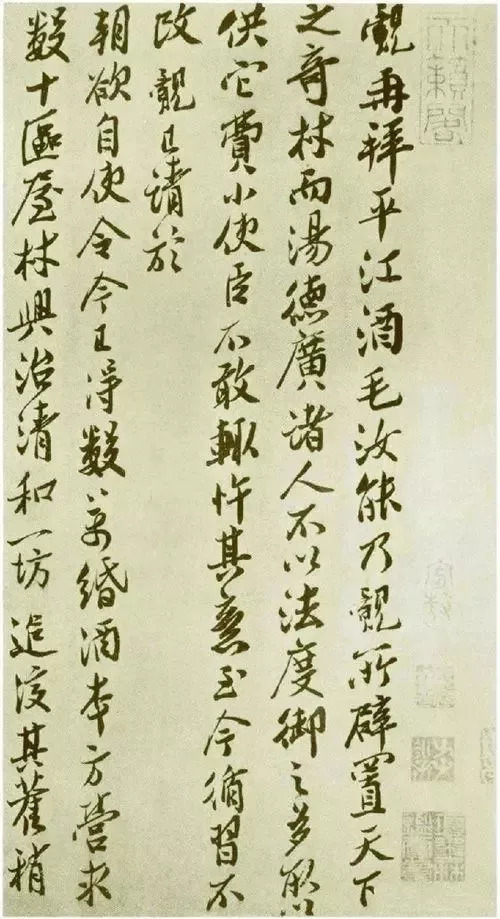 覿再拜平江酒毛汝能乃覿所辟置天下
之奇材而湯德廣諸人不以法度御之多取以
供它費小使臣不敢輒忤其意至今循習不
改覿已請於
朝欲自使令今已得數万緡酒本方營求
數十區屋材興治清和一坊追復其舊稍
天籟閣